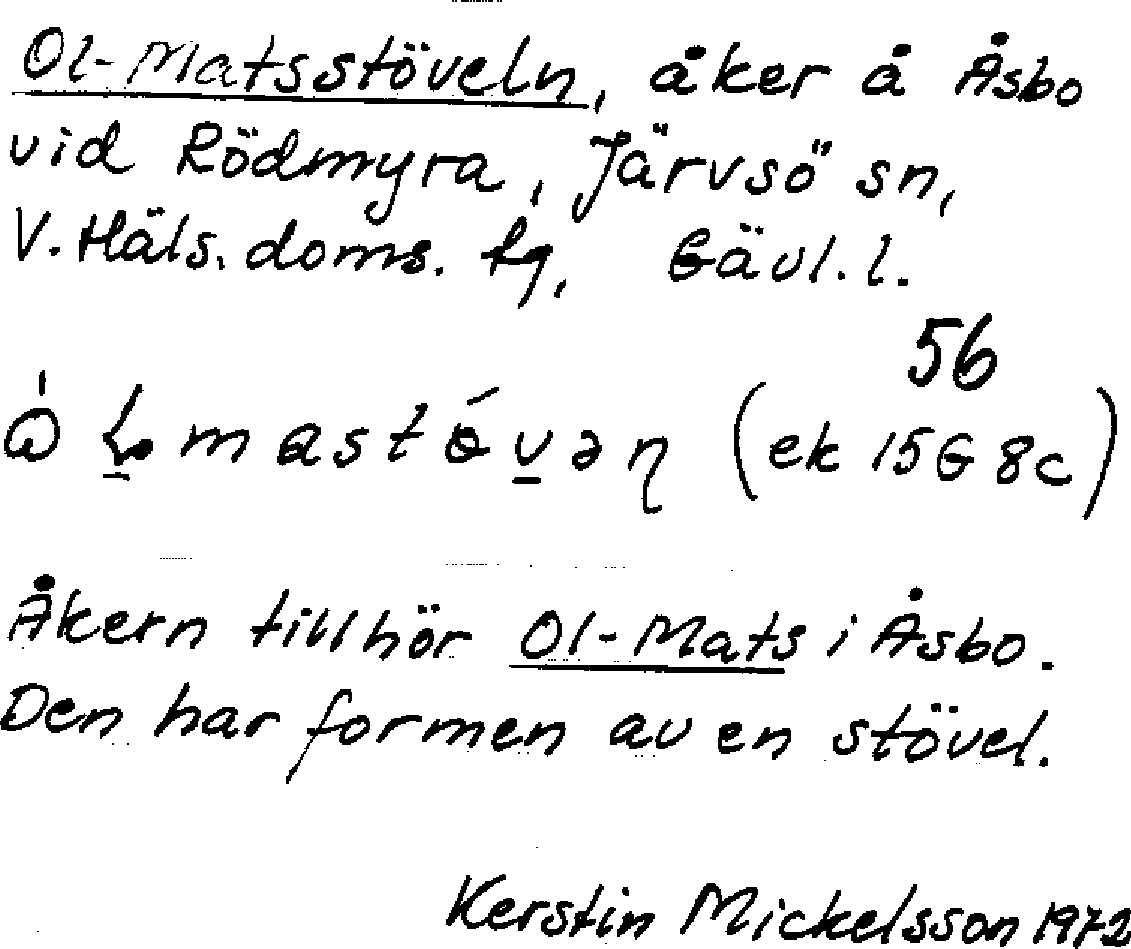 Ol-Matsstöveln, åker å Åsbo
vid Rödmyra, Järvsö sn,
V. Häls. doms. tg, Gävl. l.
56
(ek 15G 8c)
Åkern tillhör Ol-Mats i Åsbo.
Den har formen av en stövel.
Kerstin Mickelsson 1972